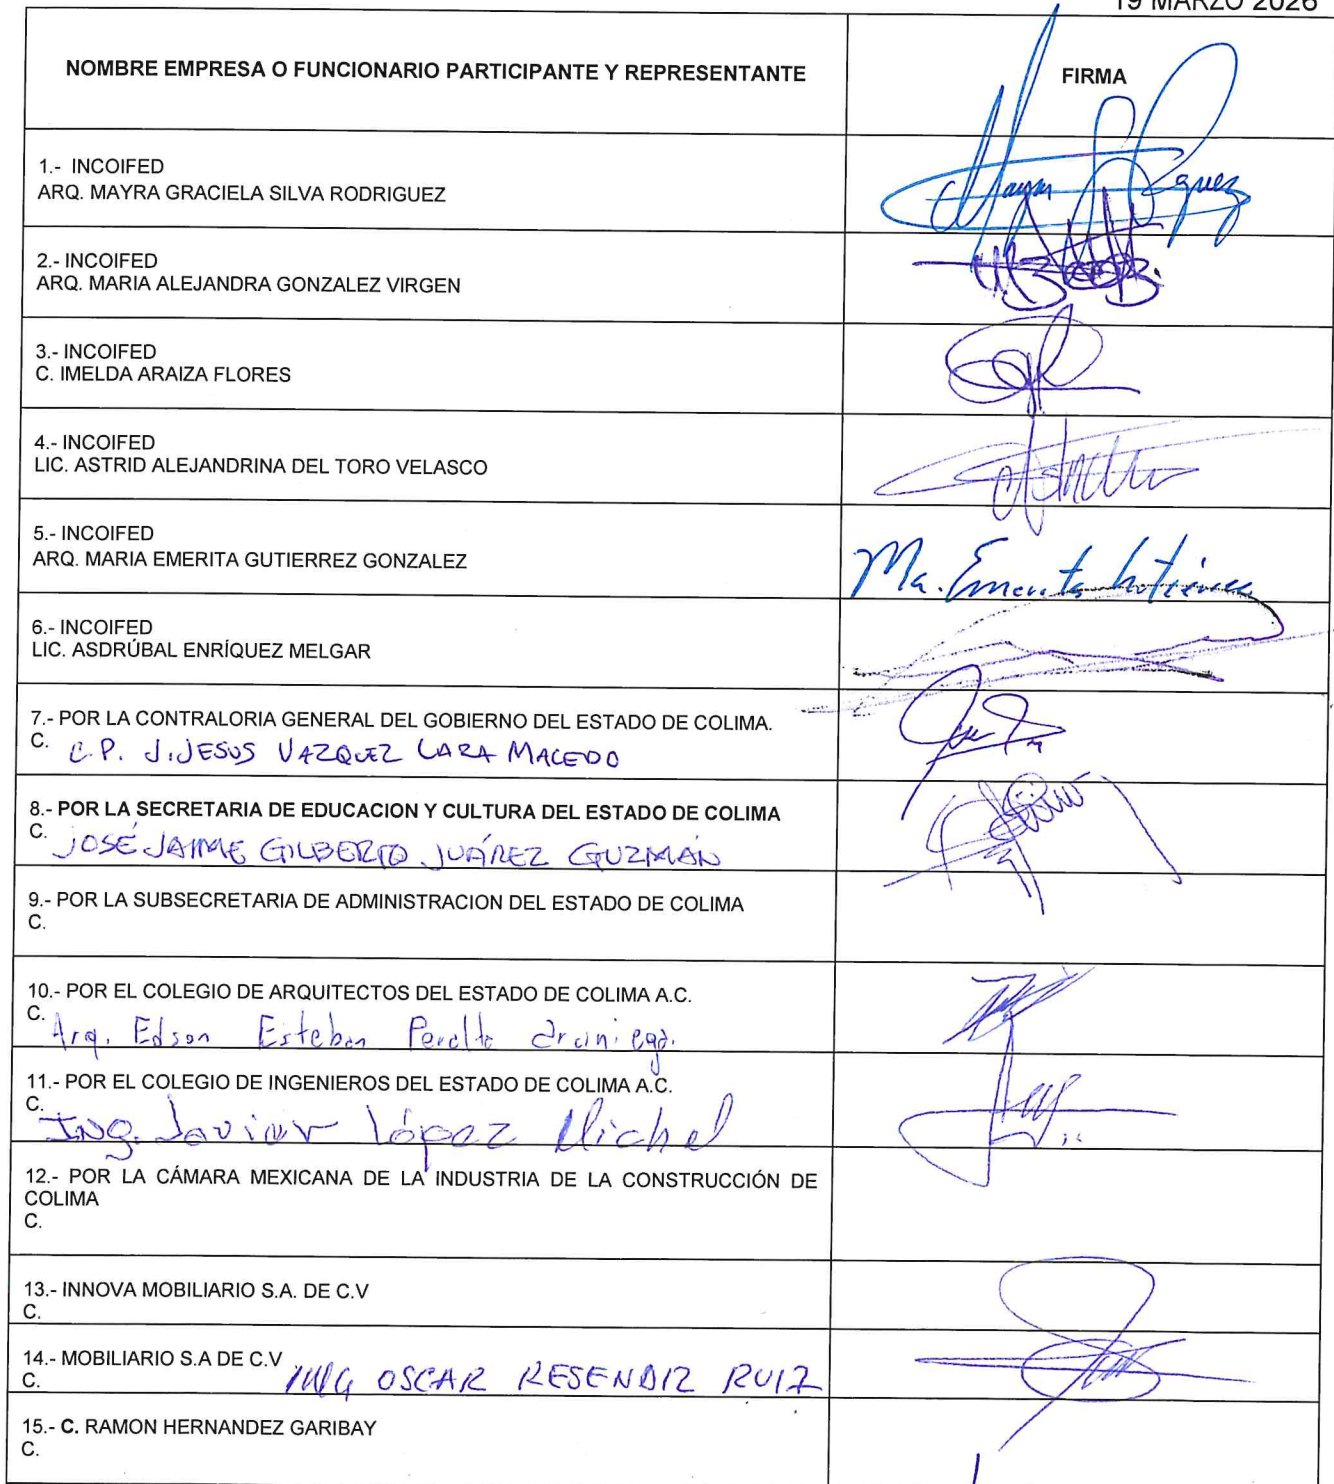 19 MARZO 2026
NOMBRE EMPRESA O FUNCIONARIO PARTICIPANTE Y REPRESENTANTE
FIRMA
1.- INCOIFED
ARQ. MAYRA GRACIELA SILVA RODRIGUEZ
2.- INCOIFED
ARQ. MARIA ALEJANDRA GONZALEZ VIRGEN
3.- INCOIFED
C. IMELDA ARAIZA FLORES
4.- INCOIFED
LIC. ASTRID ALEJANDRINA DEL TORO VELASCO
5.- INCOIFED
ARQ. MARIA EMERITA GUTIERREZ GONZALEZ
Ma. Emerita
6.- INCOIFED
LIC. ASDRÚBAL ENRÍQUEZ MELGAR
7.- POR LA CONTRALORIA GENERAL DEL GOBIERNO DEL ESTADO DE COLIMA.
C. C.P. J. JESUS VAZQUEZ LARA MACEDO
8.- POR LA SECRETARIA DE EDUCACION Y CULTURA DEL ESTADO DE COLIMA
C. JOSÉ JAIME GILBERTO JUÁREZ GUZMÁN
9.- POR LA SUBSECRETARIA DE ADMINISTRACION DEL ESTADO DE COLIMA
C.
10.- POR EL COLEGIO DE ARQUITECTOS DEL ESTADO DE COLIMA A.C.
C. Arq. Edson Esteban Peralta
11.- POR EL COLEGIO DE INGENIEROS DEL ESTADO DE COLIMA A.C.
C. Ing. Javier López Michel
12.- POR LA CÁMARA MEXICANA DE LA INDUSTRIA DE LA CONSTRUCCIÓN DE
COLIMA
C.
13.- INNOVA MOBILIARIO S.A. DE C.V
C.
14.- MOBILIARIO S.A DE C.V
C. ING OSCAR RESENDIZ RUIZ
15.- C. RAMON HERNANDEZ GARIBAY
C.